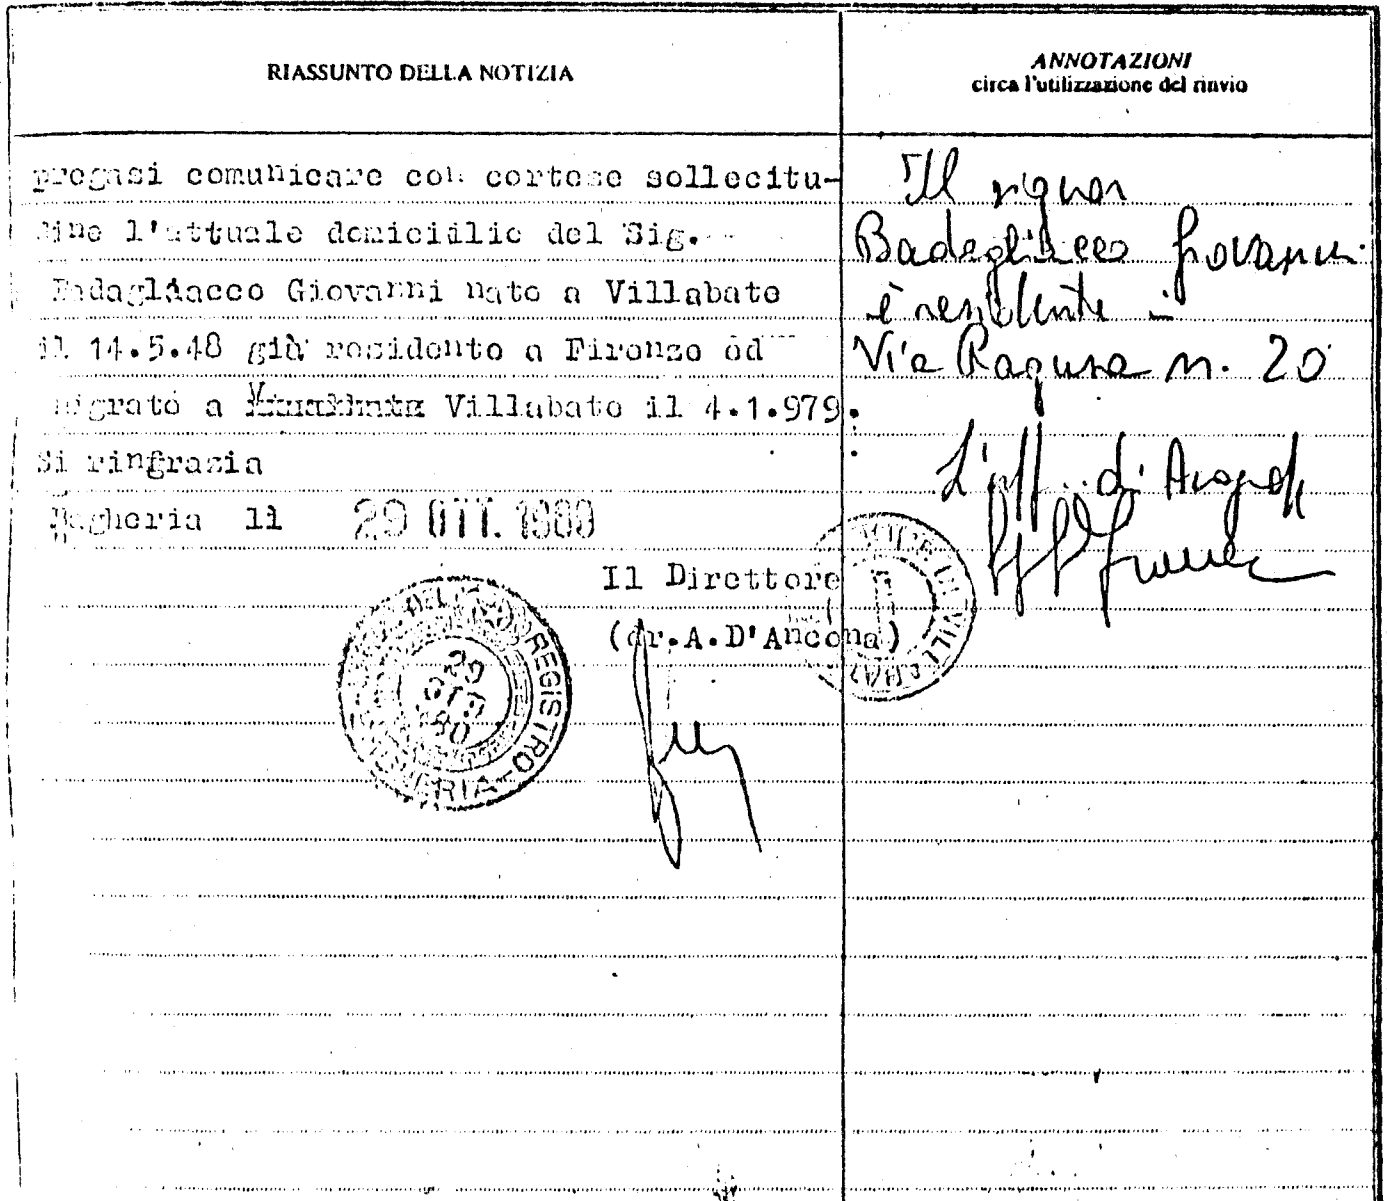 RIASSUNTO DELLA NOTIZIA
pregasi comunicare con cortese sollecitu-
dine l'attuale domiciilio del Sig.
Badagliacco Giovanni nato a Villabate
il 14.5.48 già residente a Firenze ed
migrato a Villabate il 4.1.979.
Si ringrazia
Bagheria li 29 OTT. 1980
Il Direttore
(dr.A.D'Ancona)
REGISTRO
ANNOTAZIONI
circa l'utilizzazione del rinvio
Il signor
Badagliacco Giovanni
è residente in
Via Ragusa n. 20
L'uff. di Anagrafe